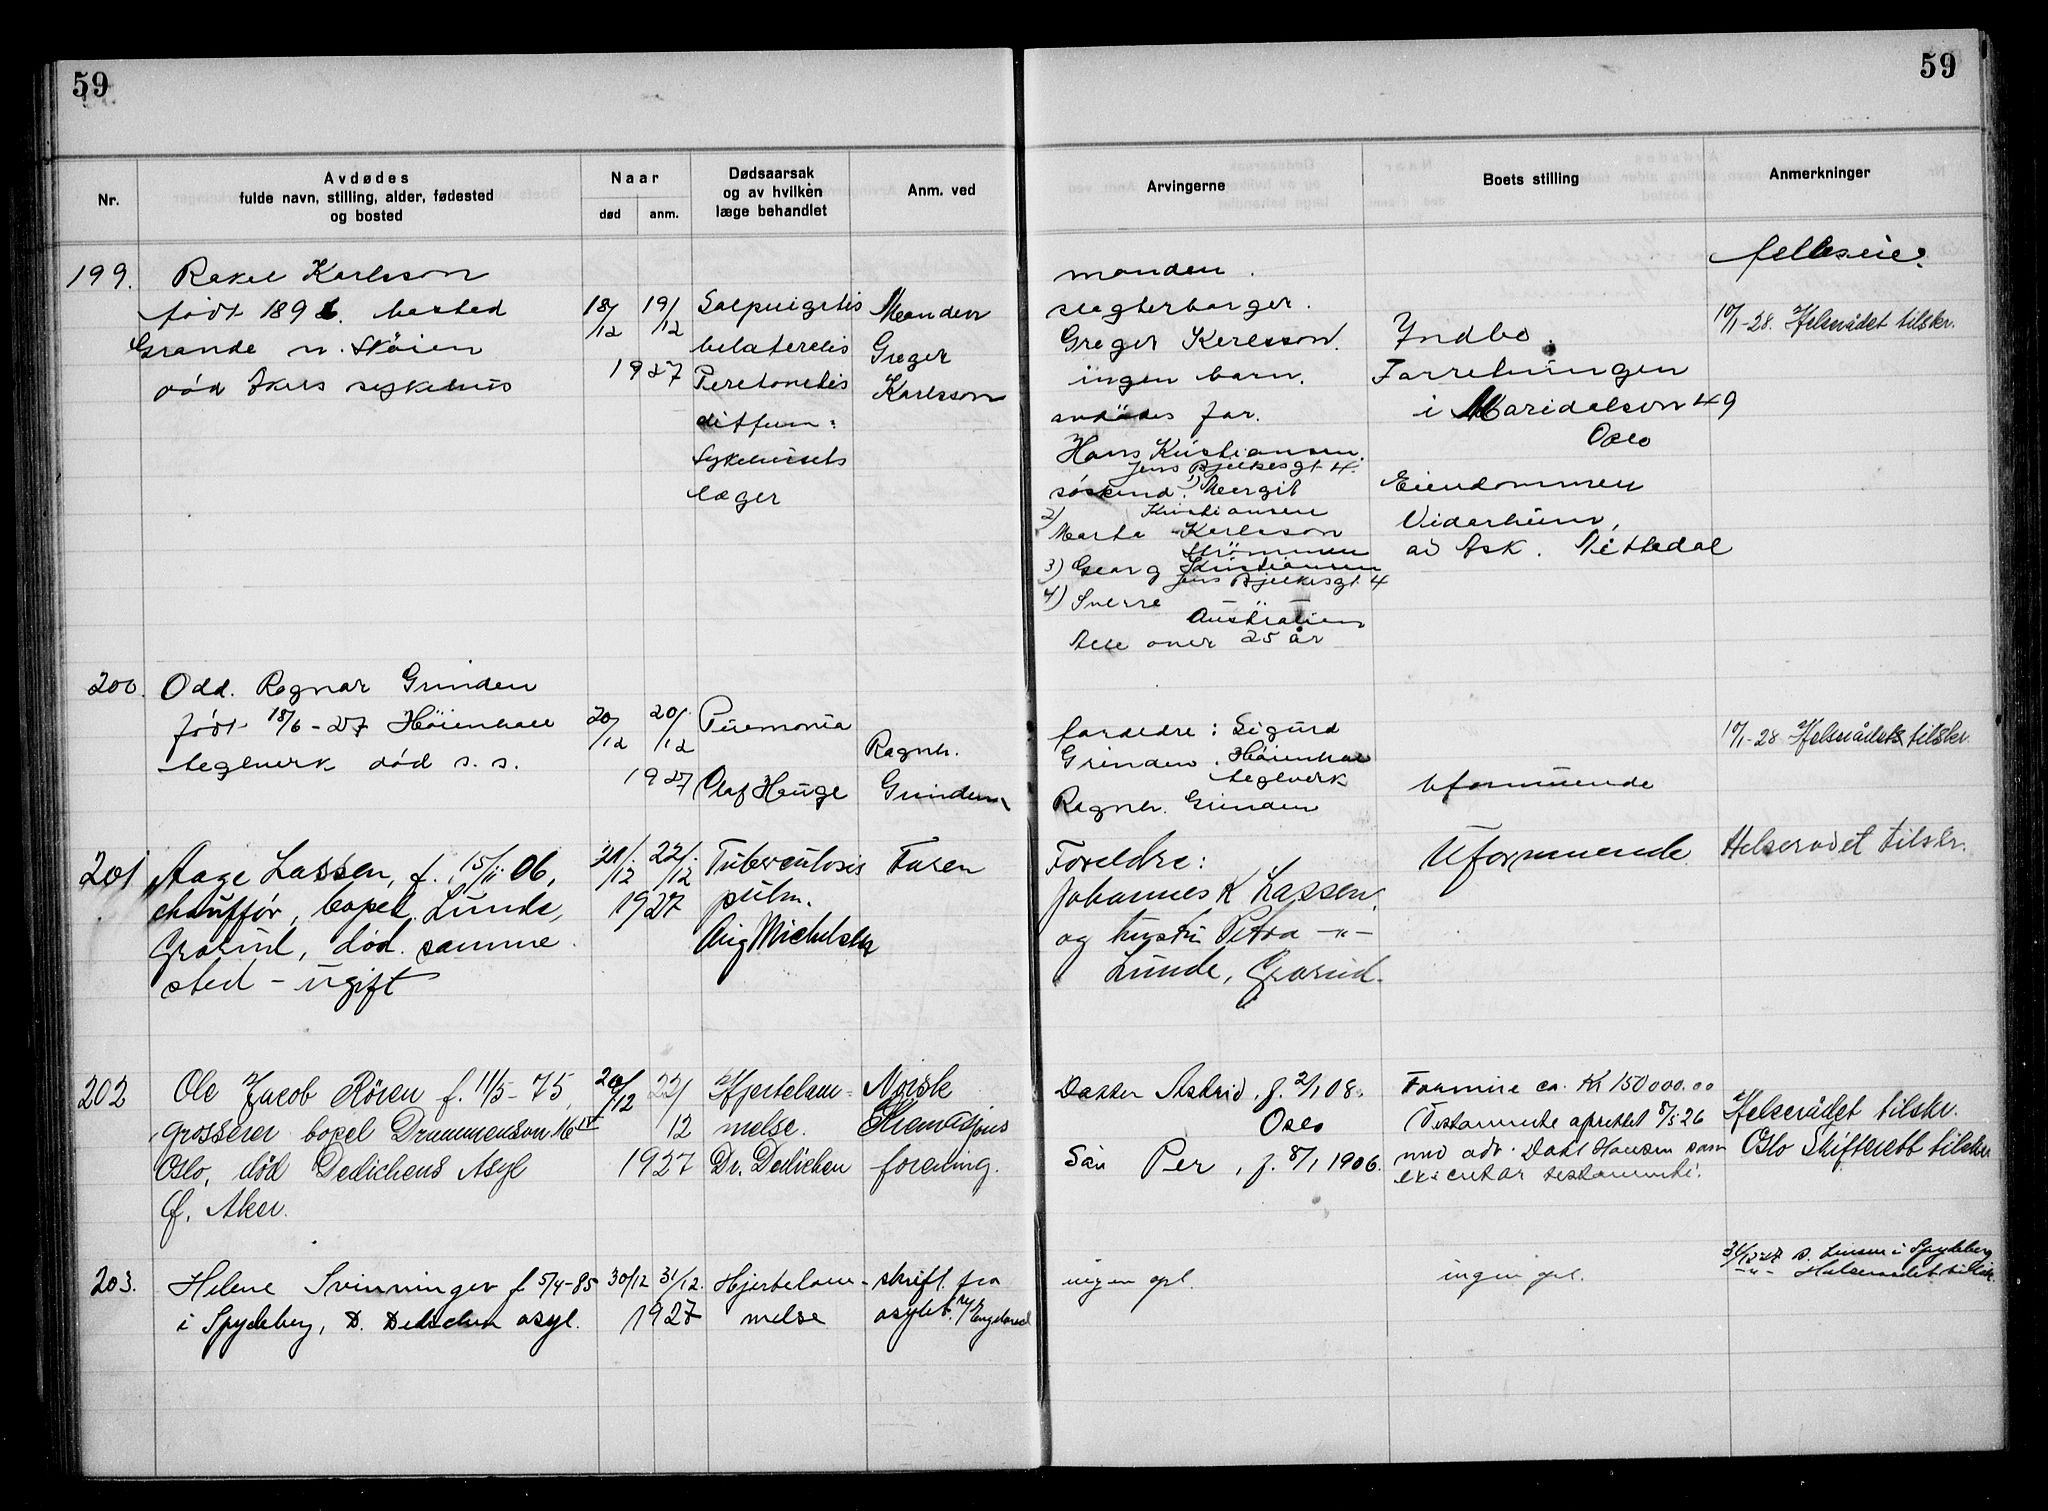 59
59
Nr.
Avdødes
fulde navn, stilling, alder, fødested
og bosted
Naar
død
anm.
Dødsaarsak
og av hvilken
læge behandlet
Anm. ved
Arvingerne
Boets stilling
Anmerkninger
199.
Rakel Karlsson
født 1896. bosted
Grande n. Skøien
død Akers sykehus
18/12
19/12
1927
Salpingitis
belaterelis
Peretonetis
diffum:
Sykehusets
læger
Manden
Greger
Karlsson
manden.
slagterborger.
Greger Karlsson.
ingen barn.
avdødes far.
Hans Kristiansen.
Jens Bjelkesgt 4.
søskend. 1) Margit
Kristiansen
2) Marta Karlsson
Strømmen
3) Georg Kristiansen
Jens Bjelkesgt 4
4) Sverre
Australien
Alle over 25 år
Indbo.
Forretningen
i Maridalsvn 49
Oslo
Eiendommen
Vidarheim,
av Ask. Nittedal
felleseie.
10/1-28. Helserådet tilskr.
200.
Odd. Ragnar Grinden
født 18/6-27 Høienhall
teglverk død s. s.
20/12
20/12
1927
Pneumonia
Olaf Hauge
Ragnh.
Grinden
foreldre: Sigurd
Grinden. Høienhal
teglverk
Ragnh. Grinden
uformuende
10/1-28 Helserådets tilskr.
201
Aage Lassen, f. 15/11 06,
chauffør, bopel Lunde,
Grorud, død samme
sted - ugift
21/12
22/12
1927
Tuberculosis
pulm.
Aug Michelsen
Faren
Foreldre:
Johannes K Lassen,
og hustru Petra -"-
Lunde, Grorud.
Uformuende
Helserådet tilskr.
202
Ole Jacob Røren f. 11/5-75,
grosserer bopel Drammensvn 16 IV
Oslo, død Dedichens Asyl
Ø. Aker.
20/12
22/12
1927
Hjertelam-
melse.
Dr. Dedichen
Norsk
Kremasjons
forening.
Datter Astrid, f. 2/1 08.
Oslo
Søn Per, f. 8/1 1906.
Formue ca. Kr 150000.00
(Testamente oprettet 8/5 26
med adv. Dahl Hansen som
executor testamenti.
Helserådet tilskr.
Oslo Skifterett tilskr.
203.
Helene Svinninger f. 5/4-85
i Spydeberg, D. Dedichen asyl.
30/12
31/12.
1927
Hjertelam-
melse
skrift. fra
asylet.
ingen opl.
ingen opl.
31/12-27 s. Linsm i Spydeberg
-"- Helserådet tilskr.